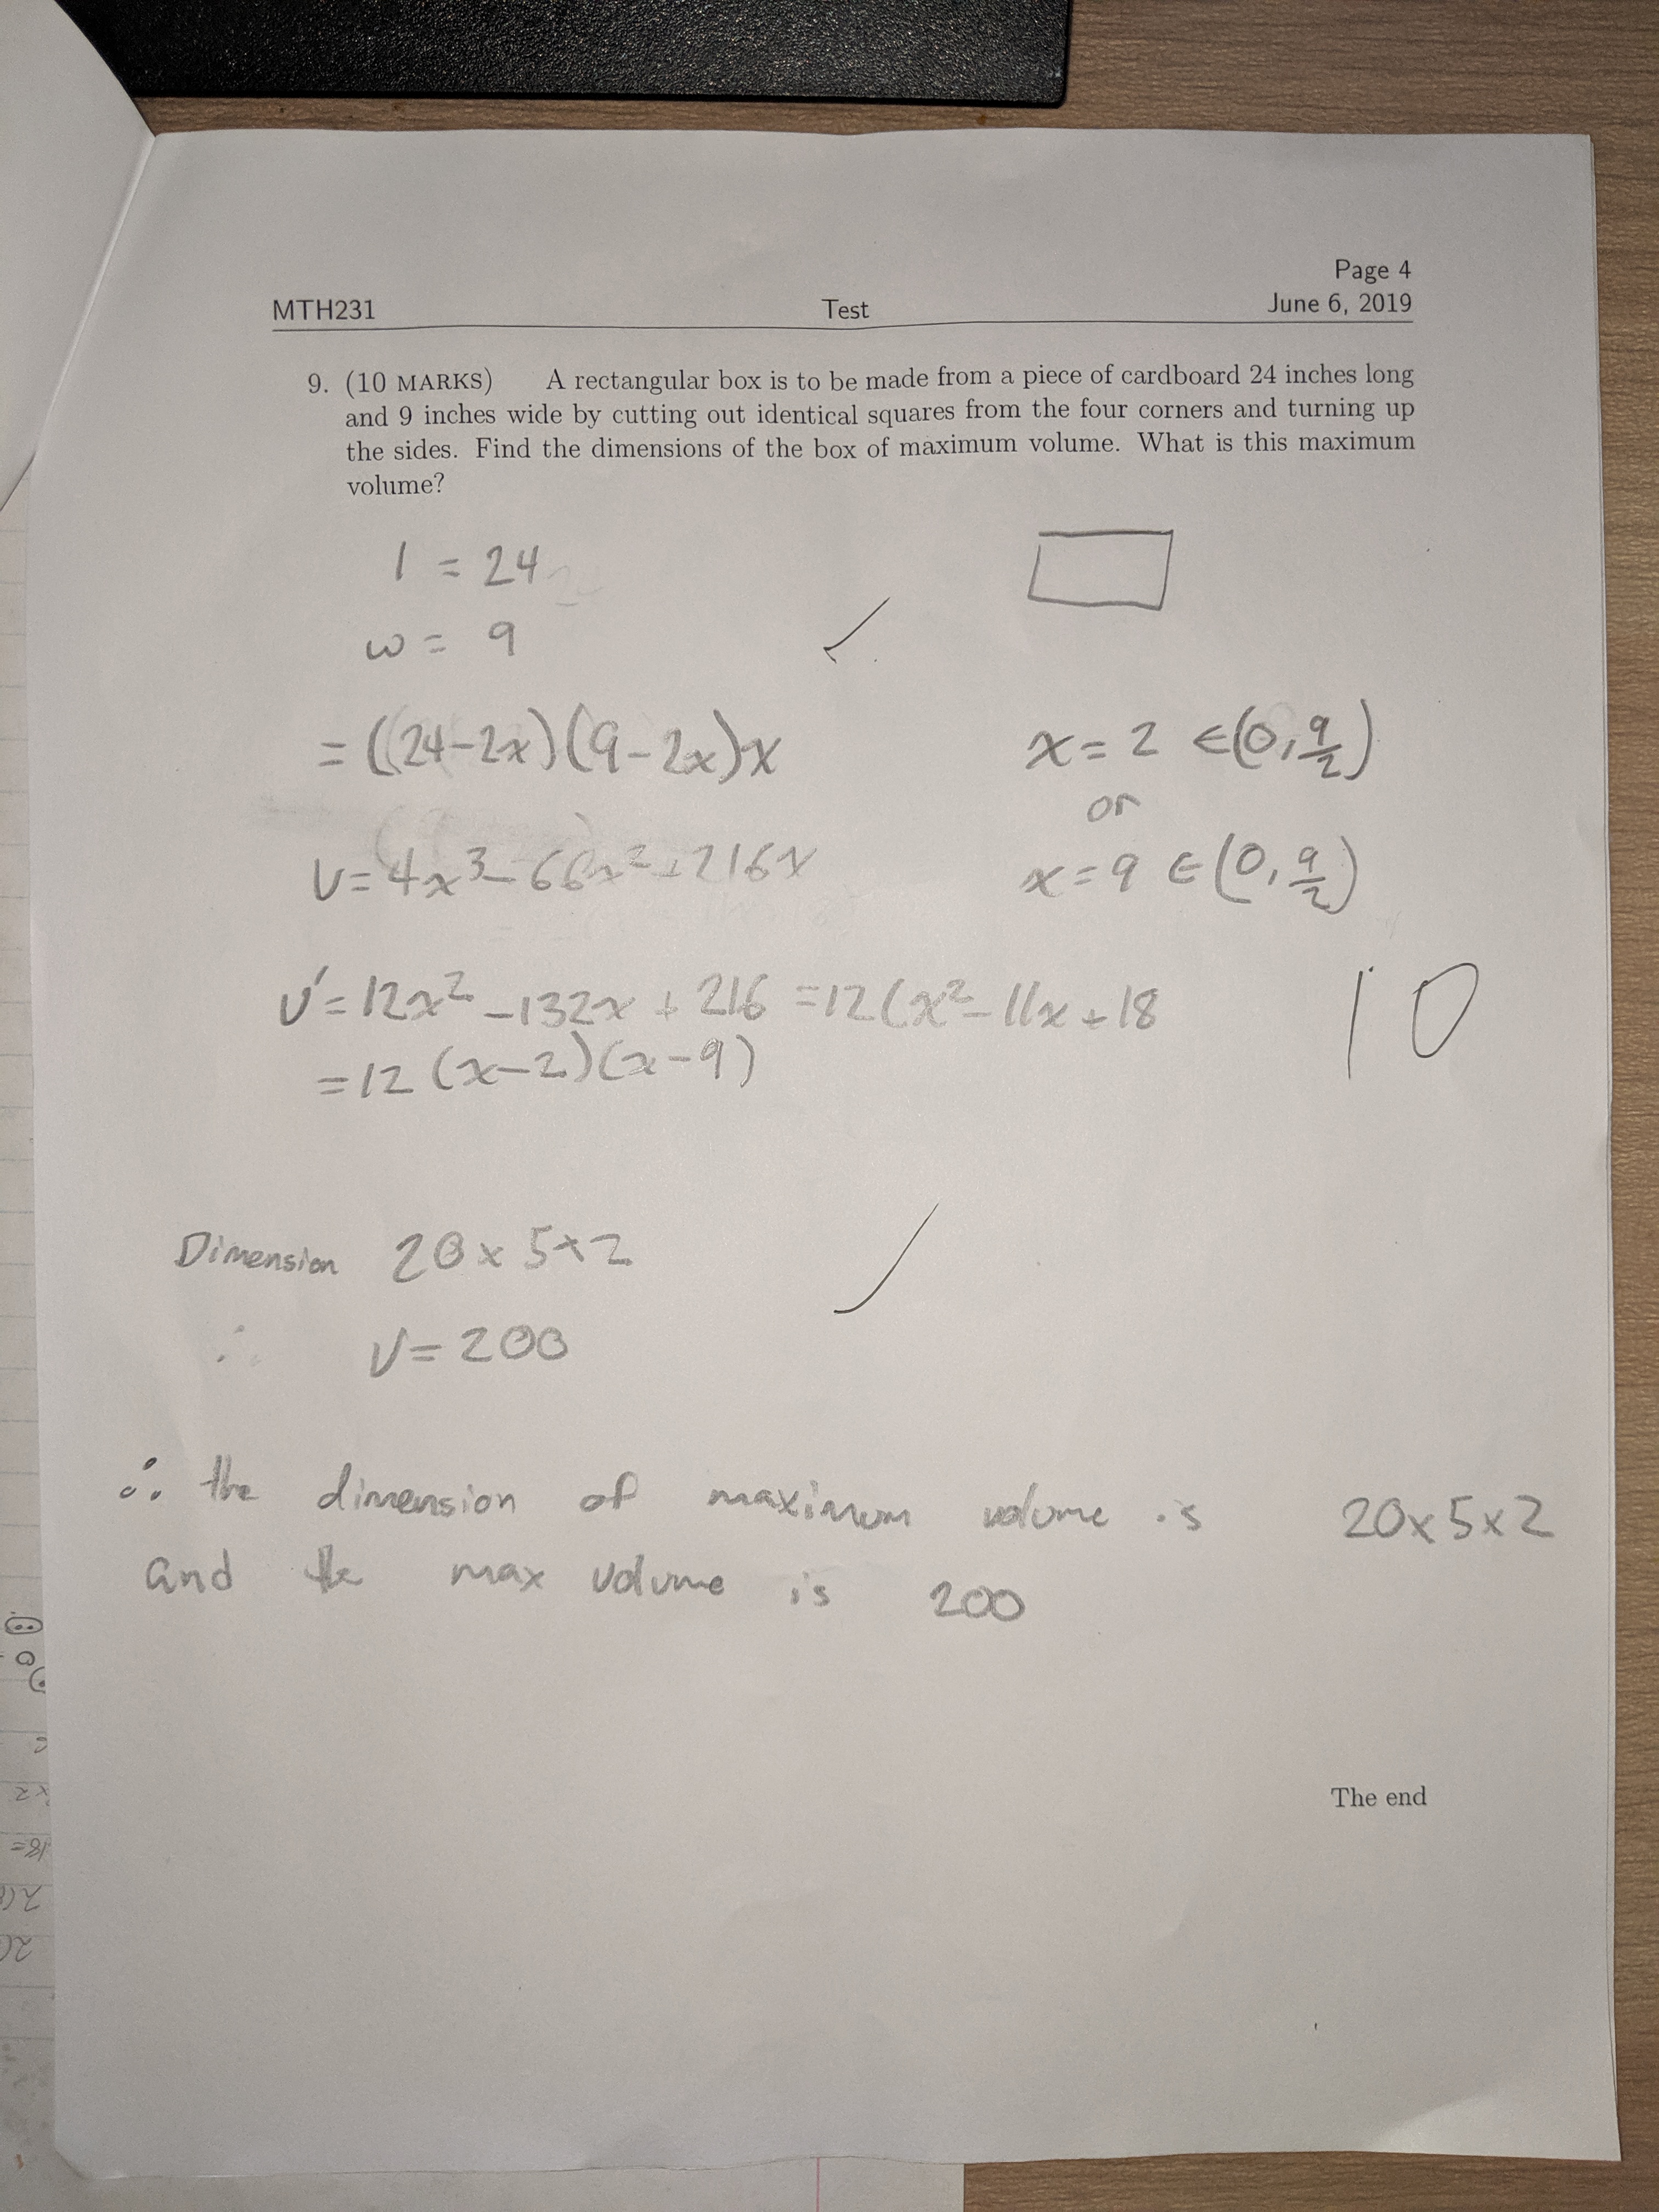 Page 4
MTH231 Test June 6, 2019
9. (10 MARKS) A rectangular box is to be made from a piece of cardboard 24 inches long
and 9 inches wide by cutting out identical squares from the four corners and turning up
the sides. Find the dimensions of the box of maximum volume. What is this maximum
volume?
l = 24
w = 9
= (24-2x)(9-2x)x
V = 4x³ - 66x² + 216x
x = 2 ∈ (0, 9/2)
or
x = 9 ∈ (0, 9/2)
V' = 12x² - 132x + 216 = 12(x² - 11x + 18
= 12 (x-2)(x-9)
10
Dimension 20 x 5 x 2
∴ V = 200
∴ the dimension of maximum volume is 20 x 5 x 2
and the max volume is 200
The end